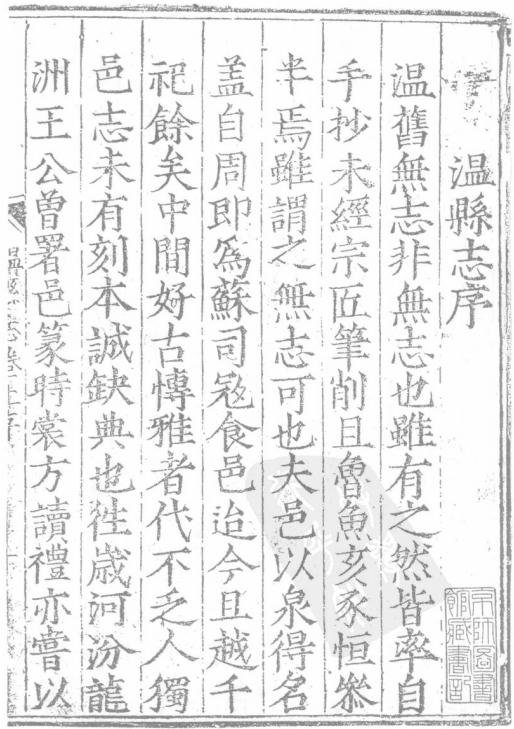 温縣志序
温舊無志非無志也雖有之然皆率自
手抄未經宗匠筆削且魯魚亥豕恒叅
半焉雖謂之無志可也夫邑以泉得名
盖自周即爲蘇司冦食邑迨今且越千
祀餘矣中間好古愽雅者代不乏人獨
邑志未有刻本誠缺典也徃歳河汾龍
洲王公曾署邑篆時裳方讀禮亦嘗以